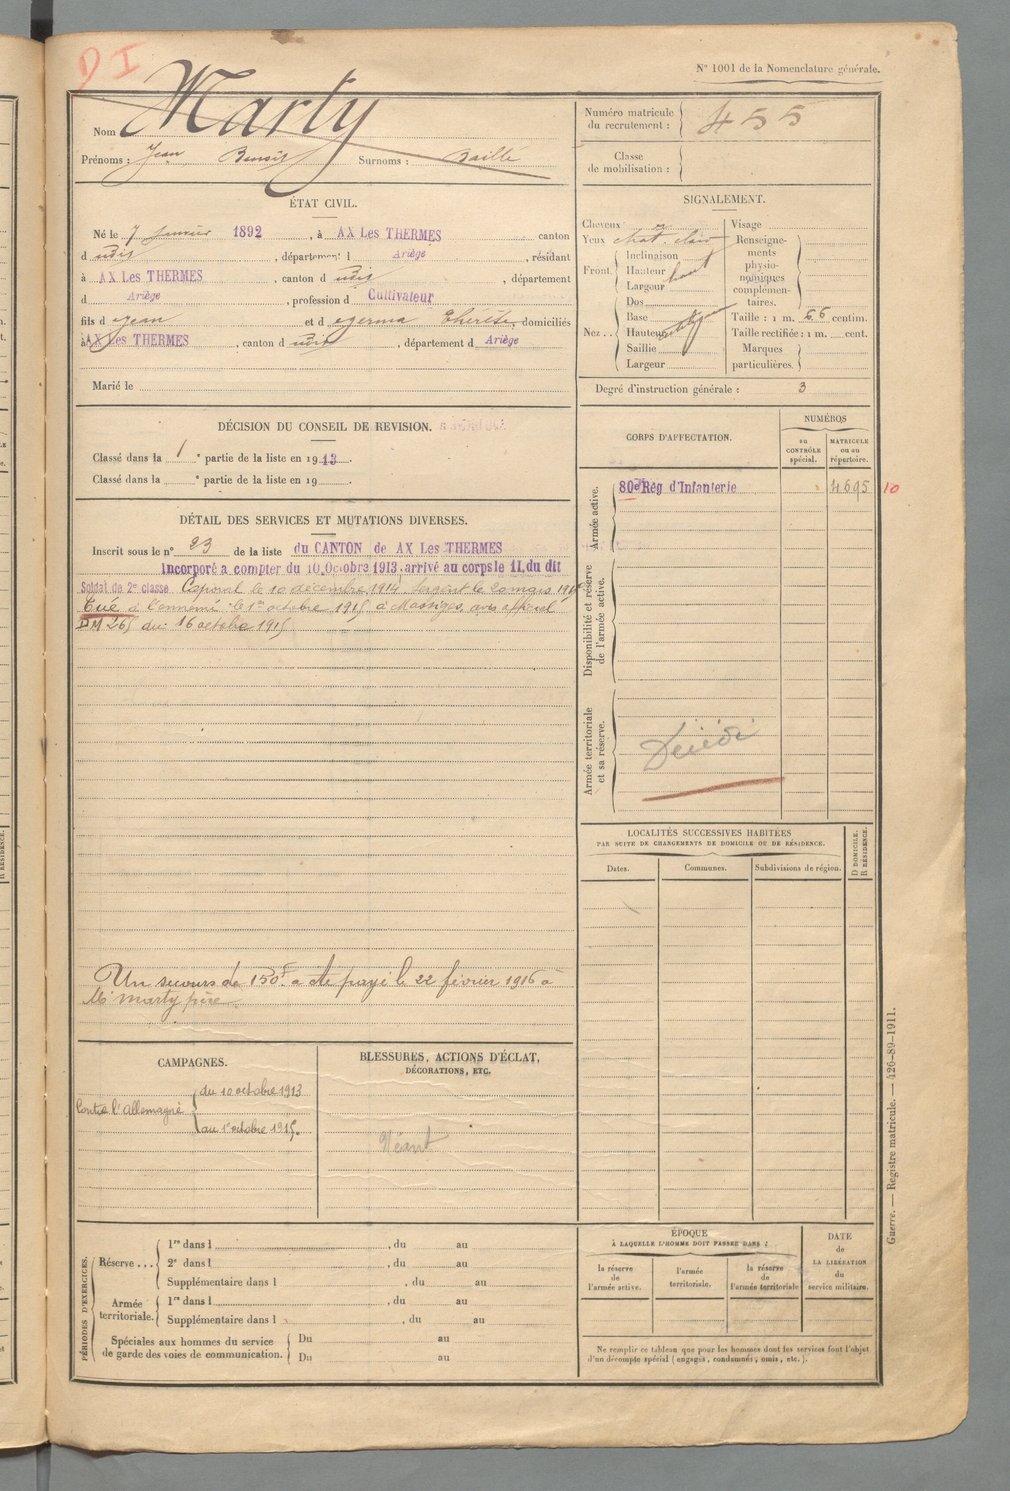 D I
N° 1001 de la Nomenclature générale.
Nom Marty
Prénoms : Jean Benoît Surnoms : Baillé
Numéro matricule du recrutement : 455
Classe de mobilisation :
ÉTAT CIVIL.
Né le 7 Janvier 1892, à AX Les THERMES canton
d udit, département d Ariège, résidant
à AX Les THERMES, canton d udit, département
d Ariège, profession d Cultivateur
fils d e Jean et d domiciliés
à AX Les THERMES, canton d udit, département d Ariège
Marié le
SIGNALEMENT.
Cheveux
Yeux chat. clair
Front. Inclinaison
Hauteur haut
Largeur
Nez . . Dos
Base
Hauteur
Saillie
Largeur
Visage
Renseignements physionomiques complémentaires.
Taille : 1 m. 66 centim.
Taille rectifiée : 1 m. cent.
Marques particulières.
Degré d'instruction générale : 3
DÉCISION DU CONSEIL DE REVISION.
Classé dans la 1e partie de la liste en 1913.
Classé dans la e partie de la liste en 19 .
CORPS D'AFFECTATION.
NUMÉROS
au CONTRÔLE spécial.
MATRICULE ou au répertoire.
Armée active.
80e Rég d'Infanterie 4695 10
Disponibilité et réserve de l'armée active.
Armée territoriale et sa réserve.
Décédé
DÉTAIL DES SERVICES ET MUTATIONS DIVERSES.
Inscrit sous le n° 23 de la liste du CANTON de AX Les THERMES
Incorporé a compter du 10 Octobre 1913, arrivé au corps le 11, du dit
Soldat de 2e classe Caporal le 10 décembre 1914 Sergent le 20 mars 1915
Tué à l'ennemi le 1er octobre 1915 à Massiges, avis officiel
DM 265 du 16 octobre 1915
Un secours de 150f a été payé le 22 février 1916 à
Mr Marty père.
LOCALITÉS SUCCESSIVES HABITÉES
PAR SUITE DE CHANGEMENTS DE DOMICILE OU DE RÉSIDENCE.
Dates. Communes. Subdivisions de région. D DOMICILE. R RÉSIDENCE.
CAMPAGNES.
Contre l'Allemagne
du 10 octobre 1913
au 1er octobre 1915.
BLESSURES, ACTIONS D'ÉCLAT,
DÉCORATIONS, ETC.
Néant
PÉRIODES D'EXERCICES.
Réserve . . . 1re dans l , du au
2e dans l , du au
Supplémentaire dans l , du au
Armée territoriale. 1re dans l , du au
Supplémentaire dans l , du au
Spéciales aux hommes du service de garde des voies de communication. Du au
Du au
ÉPOQUE
À LAQUELLE L'HOMME DOIT PASSER DANS :
la réserve de l'armée active.
l'armée territoriale.
la réserve de l'armée territoriale
DATE de LA LIBÉRATION du service militaire.
Ne remplir ce tableau que pour les hommes dont les services font l'objet
d'un décompte spécial (engagés, condamnés, omis, etc.).
Guerre. — Registre matricule. — 426-89-1911.